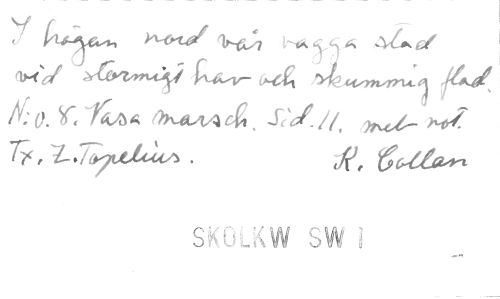 I högan nord vår vagga stod
vid stormigt hav och skummig flod.
N:o. 8. Vasa marsch. Sid. 11. mel-not.
Tx. Z. Topelius. K. Collan
SKOLKW SW 1